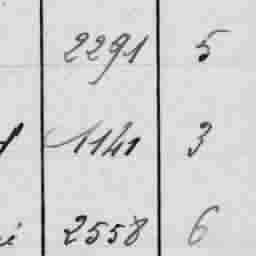 2291 5
1141 3
2558 6